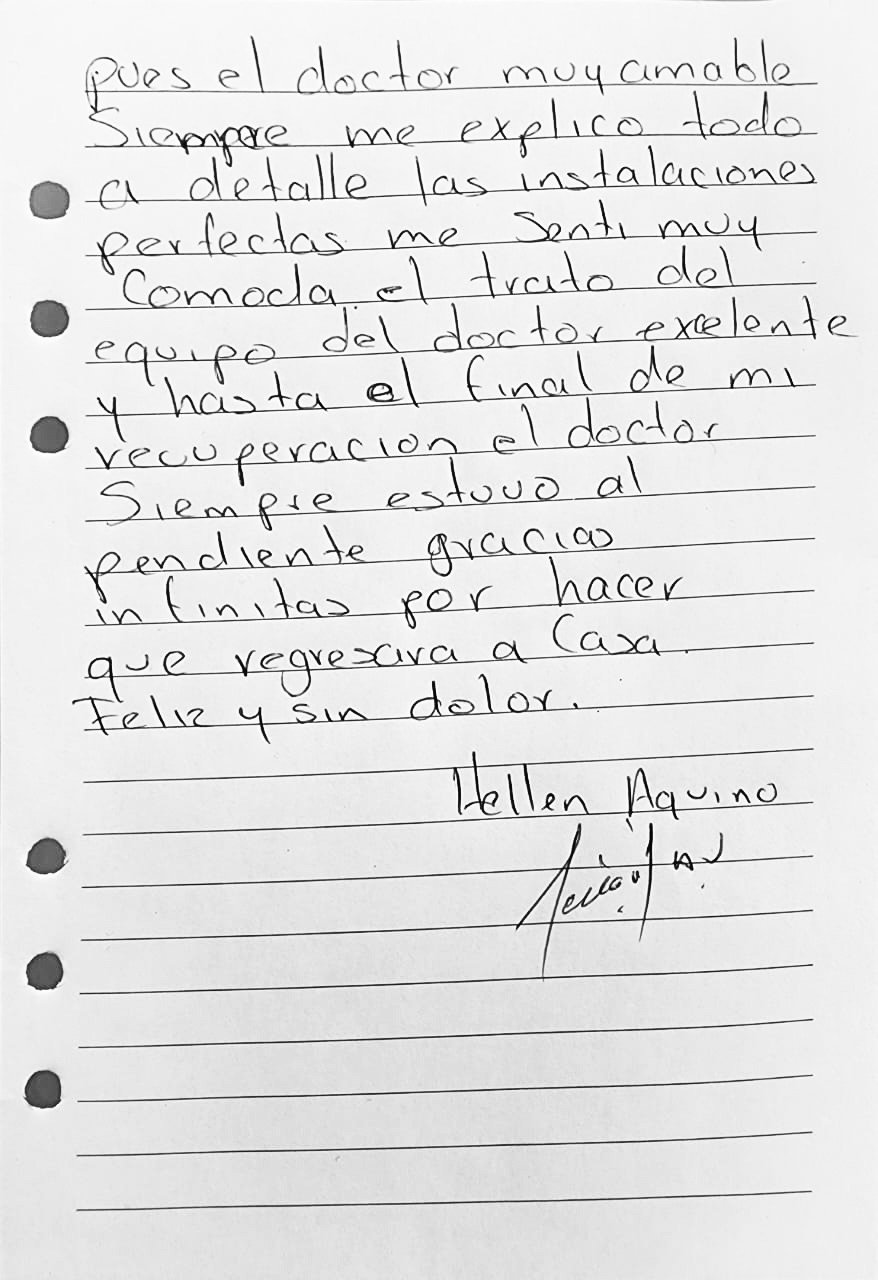 pues el doctor muy amable
Siempre me explico todo
a detalle las instalaciones
perfectas me senti muy
Comoda. el trato del
equipo del doctor excelente
y hasta el final de mi
recuperacion el doctor
Siempre estuvo al
pendiente gracias
infinitas por hacer
que regresara a Casa
Feliz y sin dolor.
Hellen Aquino